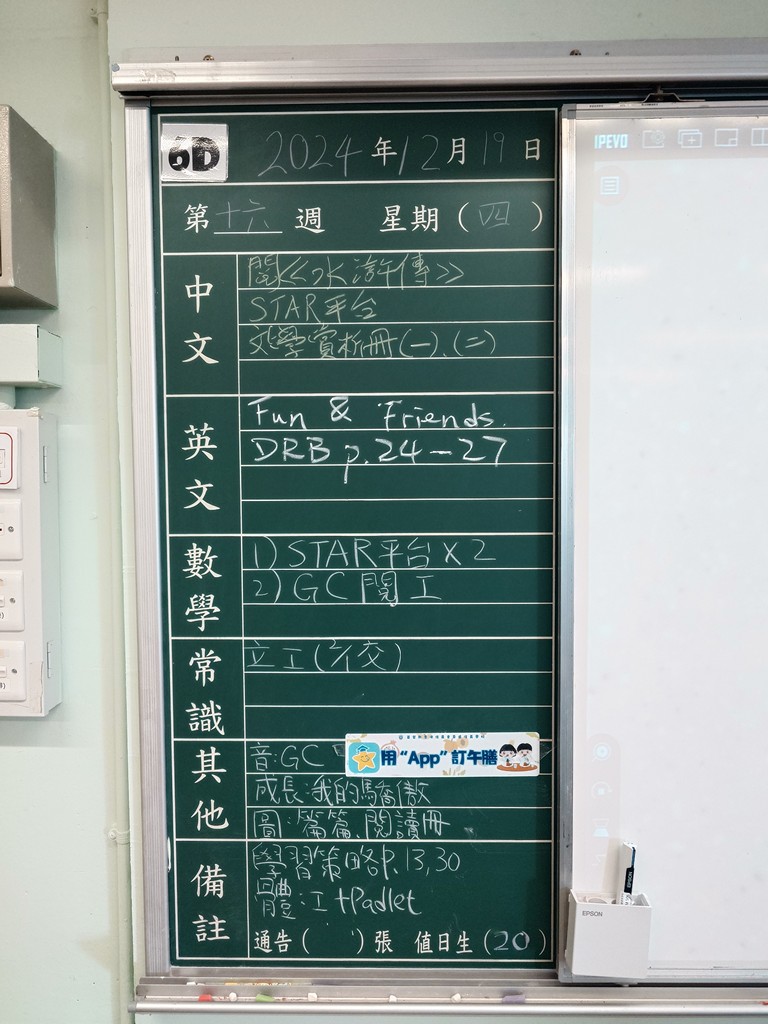 6D
2024年12月19日
第十六週 星期(四)
中文
閱《水滸傳》
STAR平台
文學賞析冊(一)、(二)
英文
Fun & Friends.
DRB p.24-27
數學
1) STAR平台 x 2
2) GC 閱工
常識
立工(2/1交)
其他
音:GC
用“App”訂午膳
成長:我的驕傲
圖:篇篇、閱讀冊
備註
學習策略P.13,30
體:工+Padlet
通告( )張 值日生(20)
IPEVO
EPSON
EPSON